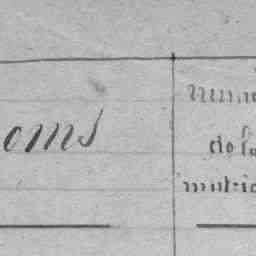 oms
de la
matric